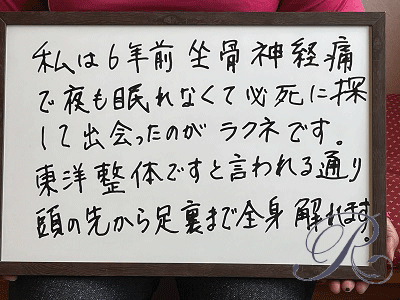 私は6年前 坐骨神経痛
で夜も眠れなくて必死に探
して出会ったのが ラクネです。
東洋整体ですと言われる通り
頭の先から足裏まで全身 解れます
R